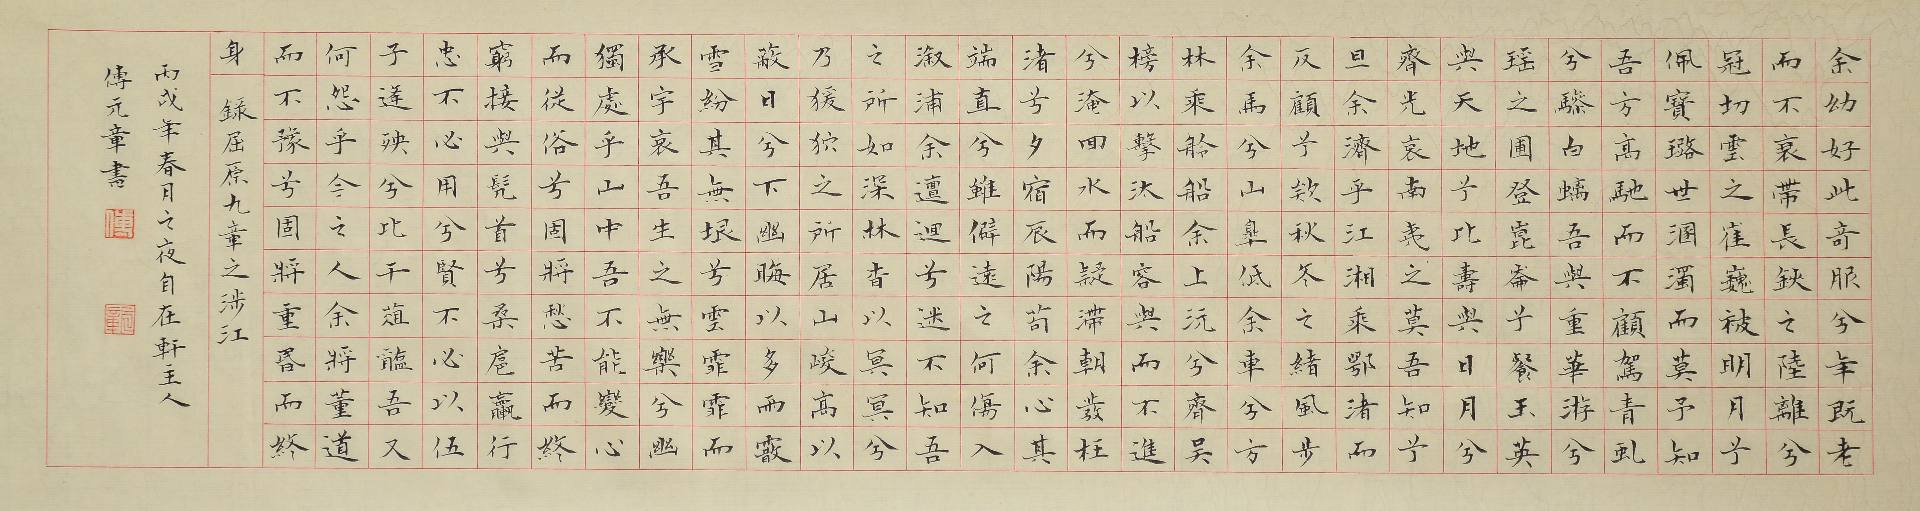 余幼好此奇服兮年既老
而不衰帶長鋏之陸離兮
冠切雲之崔巍被明月兮
佩寶璐世溷濁而莫予知
吾方高馳而不顧駕青虬
兮驂白螭吾與重華游兮
瑤之圃登崑崙兮餐玉英
與天地兮比壽與日月兮
齊光哀南夷之莫吾知兮
旦余濟乎江湘乘鄂渚而
反顧兮欸秋冬之緒風步
余馬兮山皋低余車兮方
林乘舲船余上沅兮齊吳
榜以擊汰船容與而不進
兮淹回水而疑滯朝發枉
渚兮夕宿辰陽苟余心其
端直兮雖僻遠之何傷入
溆浦余邅迴兮迷不知吾
之所如深林杳以冥冥兮
乃猨狖之所居山峻高以
蔽日兮下幽晦以多雨霰
雪紛其無垠兮雲霏霏而
承宇哀吾生之無樂兮幽
獨處乎山中吾不能變心
而從俗兮固將愁苦而終
窮接與髡首兮桑扈臝行
忠不必用兮賢不必以伍
子逢殃兮比干菹醢吾又
何怨乎今之人余將董道
而不豫兮固將重昏而終
身
錄屈原九章之涉江
丙戌年春月之夜自在軒主人
傅元章書
傅
元章